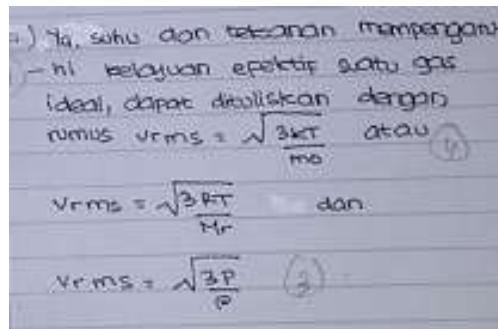 ) Ya, suhu dan tekanan mempengaru
- hi kelajuan efektif suatu gas
ideal, dapat dituliskan dengan
rumus vrms = √(3kT/mo) atau (4)
vrms = √(3RT/Mr) dan
vrms = √(3P/ρ) (3)